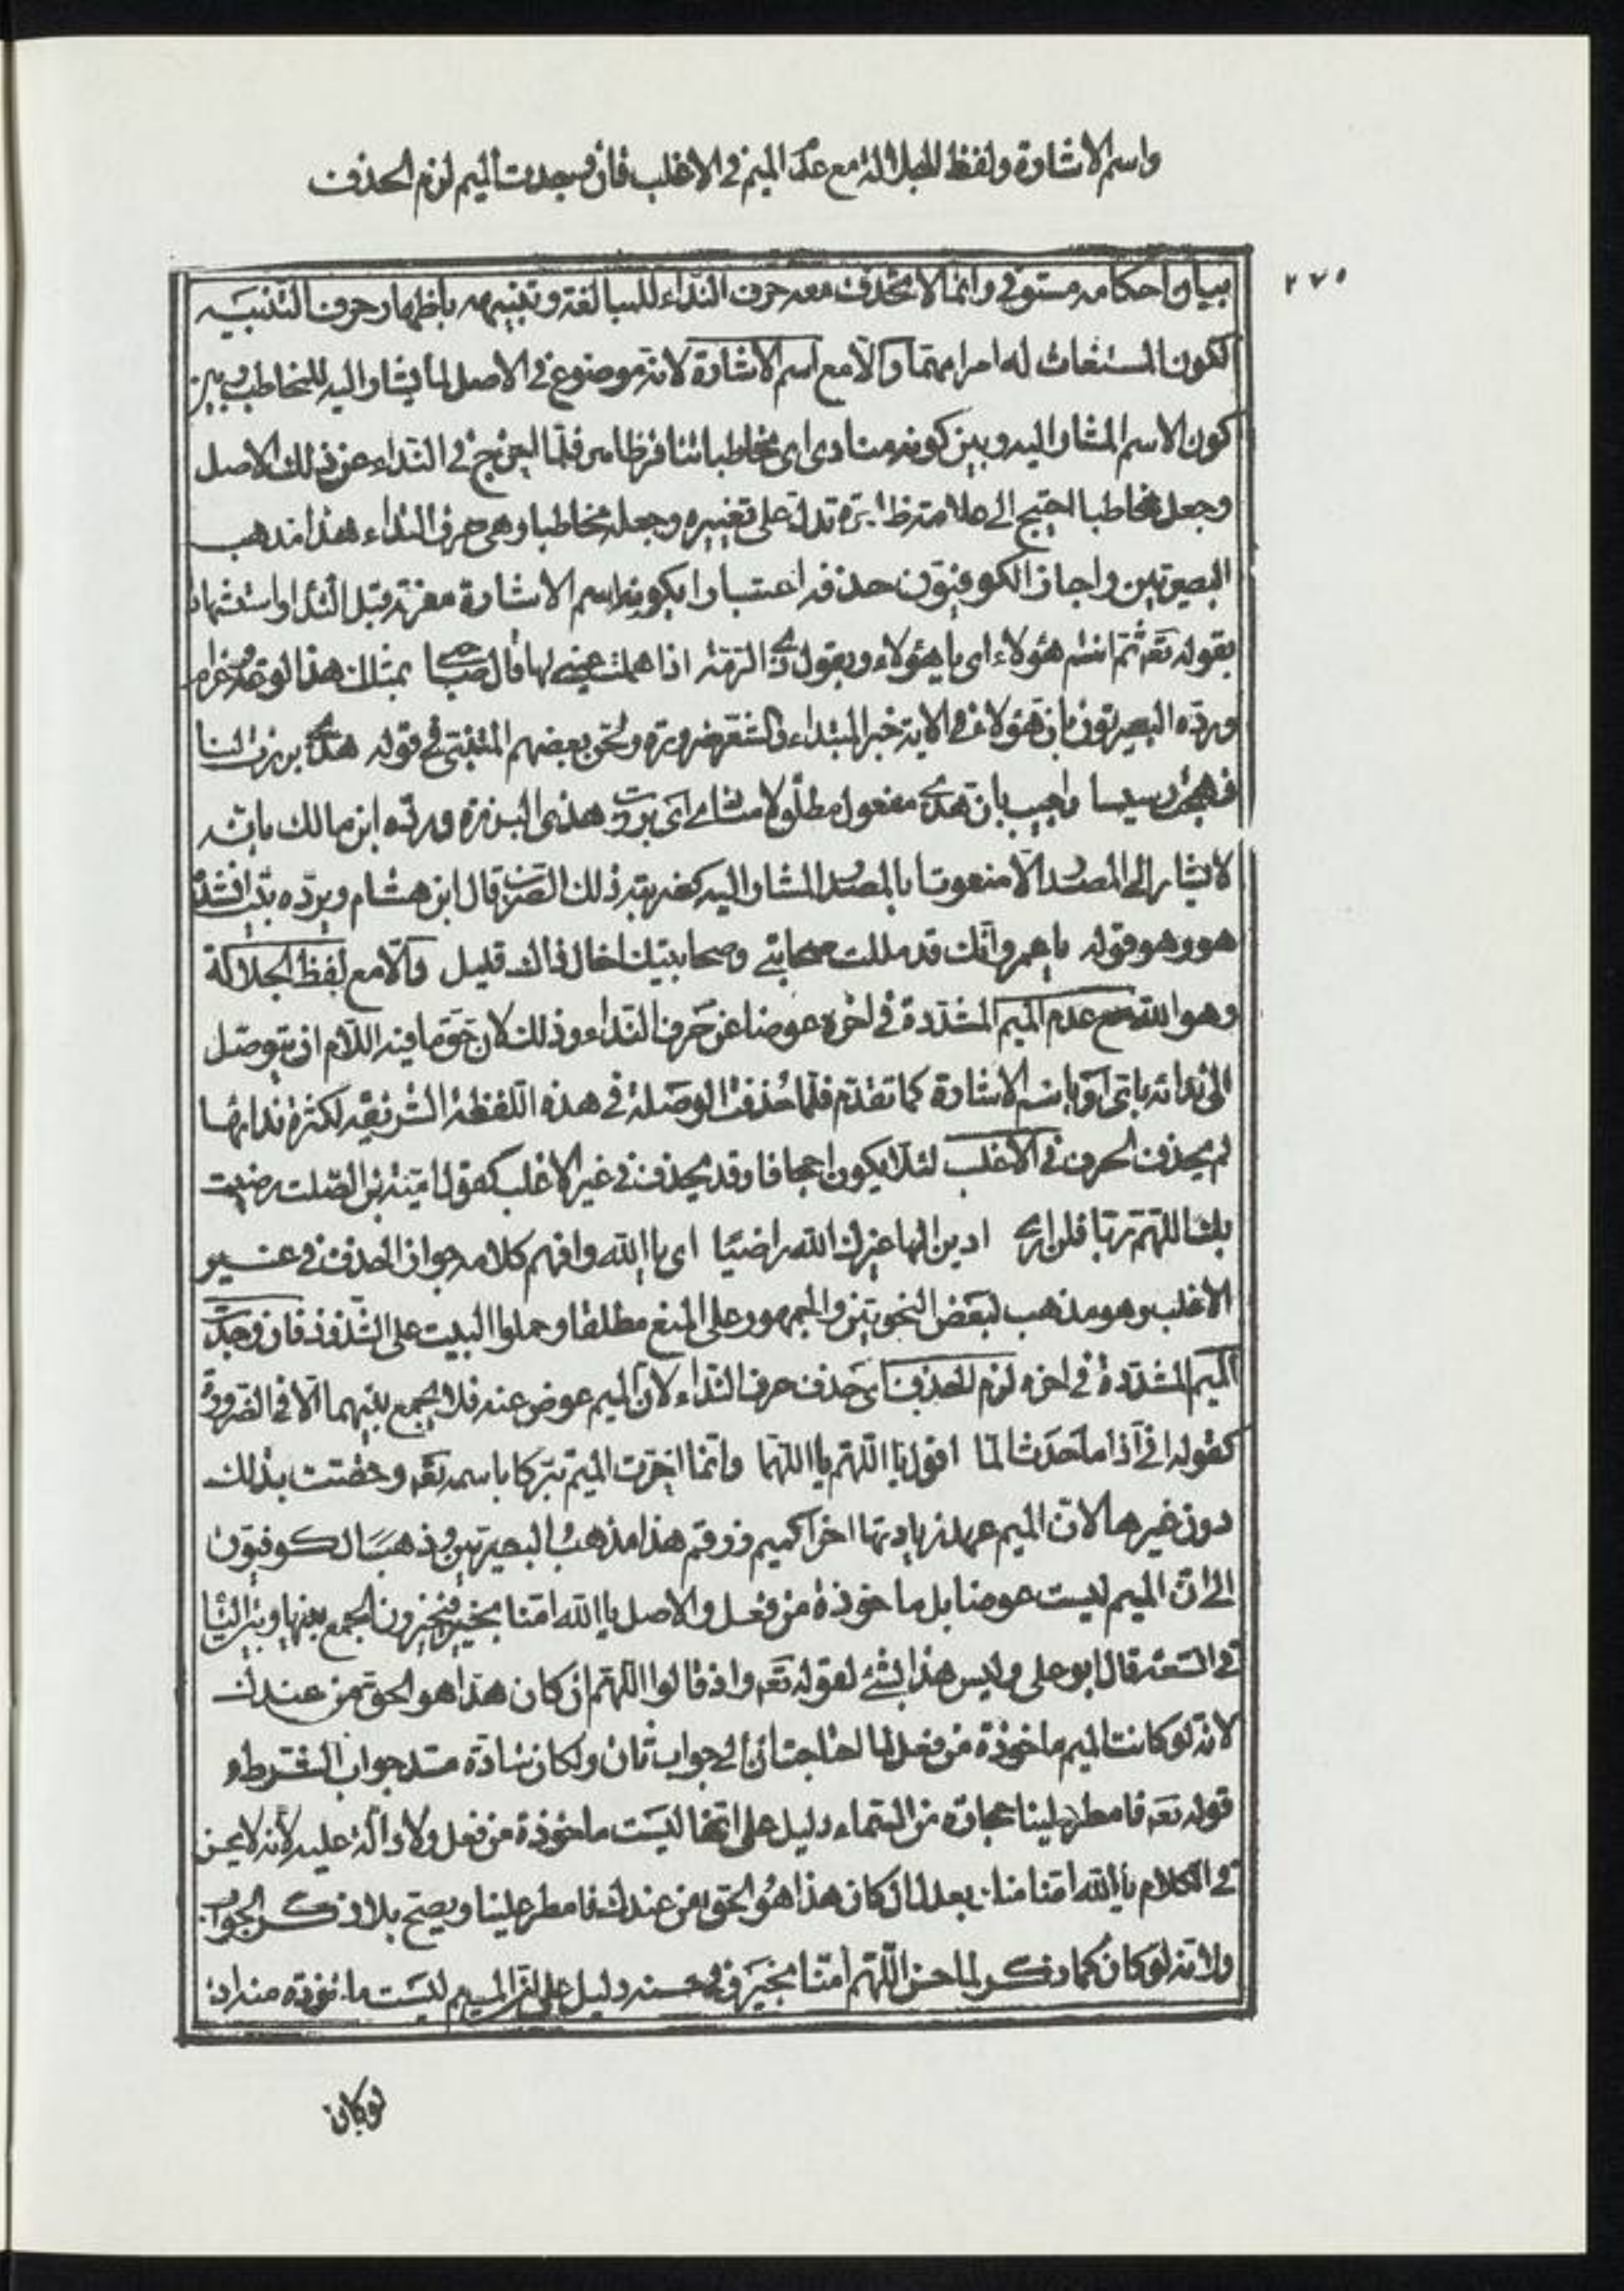 واسم الاشارة ولفظ الجلالة مع عدم الميم في الاغلب فان وجدت الميم لزم الحذف
٢٧٥
بيان احكامه مستوفى وانما لا تحذف معه حرف النداء للمبالغة وتنبيهه باظهار حرف التنبيه
لكون المستغاث له امرا مهما والا مع اسم الاشارة لانه موضوع في الاصل لما يشار اليه للمخاطب وبين
كون الاسم المشار اليه وبين كونه منادى اى مخاطبا تنافر ظاهر فلما اخرج في النداء عن ذلك الاصل
وجعل مخاطبا احتيج الى علامة ظاهرة تدل على تغييره وجعله مخاطبا وهى حرف النداء هذا مذهب
البصريين واجاز الكوفيون حذفه اعتبارا بكونه اسم الاشارة معرفة قبل النداء واستشهادا
بقوله تعه ثم انتم هؤلاء اى يا هؤلاء وبقول ذى الرمة اذا هملت عينى لها قال صاحبى بمثلك هذا لوعة وغرام
ورده البصريون بان هؤلاء في الاية خبر المبتداء والشعر ضرورة ولحن بعضهم المتنبى في قوله هذى برزت لنا
فهجت رسيسا واجيب بان هذى مفعول مطلق لا منادى اى برزت هذى البرزة ورده ابن مالك بانه
لا يشار الى المصدر الا منعوتا بالمصدر المشار اليه كضربته ذلك الضرب قال ابن هشام ويرده بيت انشده
هو وهو قوله يا عمرو انك قد مللت صحابتى وصحابتيك اخال ذاك قليل والا مع لفظ الجلالة
وهو الله مع عدم الميم المشددة في اخره عوضا عن حرف النداء وذلك لان حق ما فيه اللام ان يتوصل
الى ندائه باى او باسم الاشارة كما تقدم فلما حذفت الوصلة في هذه اللفظة الشريفة لكثرة ندائها
لم يحذف الحرف في الاغلب لئلا يكون اجحافا وقد يحذف في غير الاغلب كقول امية بن الصلت رضيت
بك اللهم ربا فلن ارى ادين الها غيرك الله راضيا اى يا الله وافهم كلامه جواز الحذف في غير
الاغلب وهو مذهب لبعض النحويين والجمهور على المنع مطلقا وحملوا البيت على الشذوذ فان وجدت
الميم المشددة في اخره لزم الحذف اى حذف حرف النداء لان الميم عوض عنه فلا يجمع بينهما الا في الضرورة
كقوله انى اذا ما حدث الما اقول يا اللهم يا اللهما وانما اخرت الميم تبركا باسمه تعه وخصت بذلك
دون غيرها لان الميم عهد زيادتها اخرا كميم زرقم هذا مذهب البصريين وذهب الكوفيون
الى ان الميم ليست عوضا بل ماخوذة من فعل والاصل يا الله امنا بخير فيجيزون الجمع بينها وبين يا
في السعة قال ابو على وليس هذا بشئ لقوله تعه واذ قالوا اللهم ان كان هذا هو الحق من عندك
لانه لو كانت الميم ماخوذة من فعل لما احتاجت ان الى جواب ثان ولكان سادة مسد جواب الشرط و
قوله تعه فامطر علينا حجارة من السماء دليل على انها ليست ماخوذة من فعل ولا دالة عليه لانه لا يحسن
في الكلام يا الله امنا منا بعد ان كان هذا هو الحق من عندك فامطر علينا ويصح بلا ذكر الجواب
ولانه لو كان كما ذكر لما حسن اللهم امنا بخير وفي حسنه دليل على ان الميم ليست ماخوذة منه اذ
لو كان